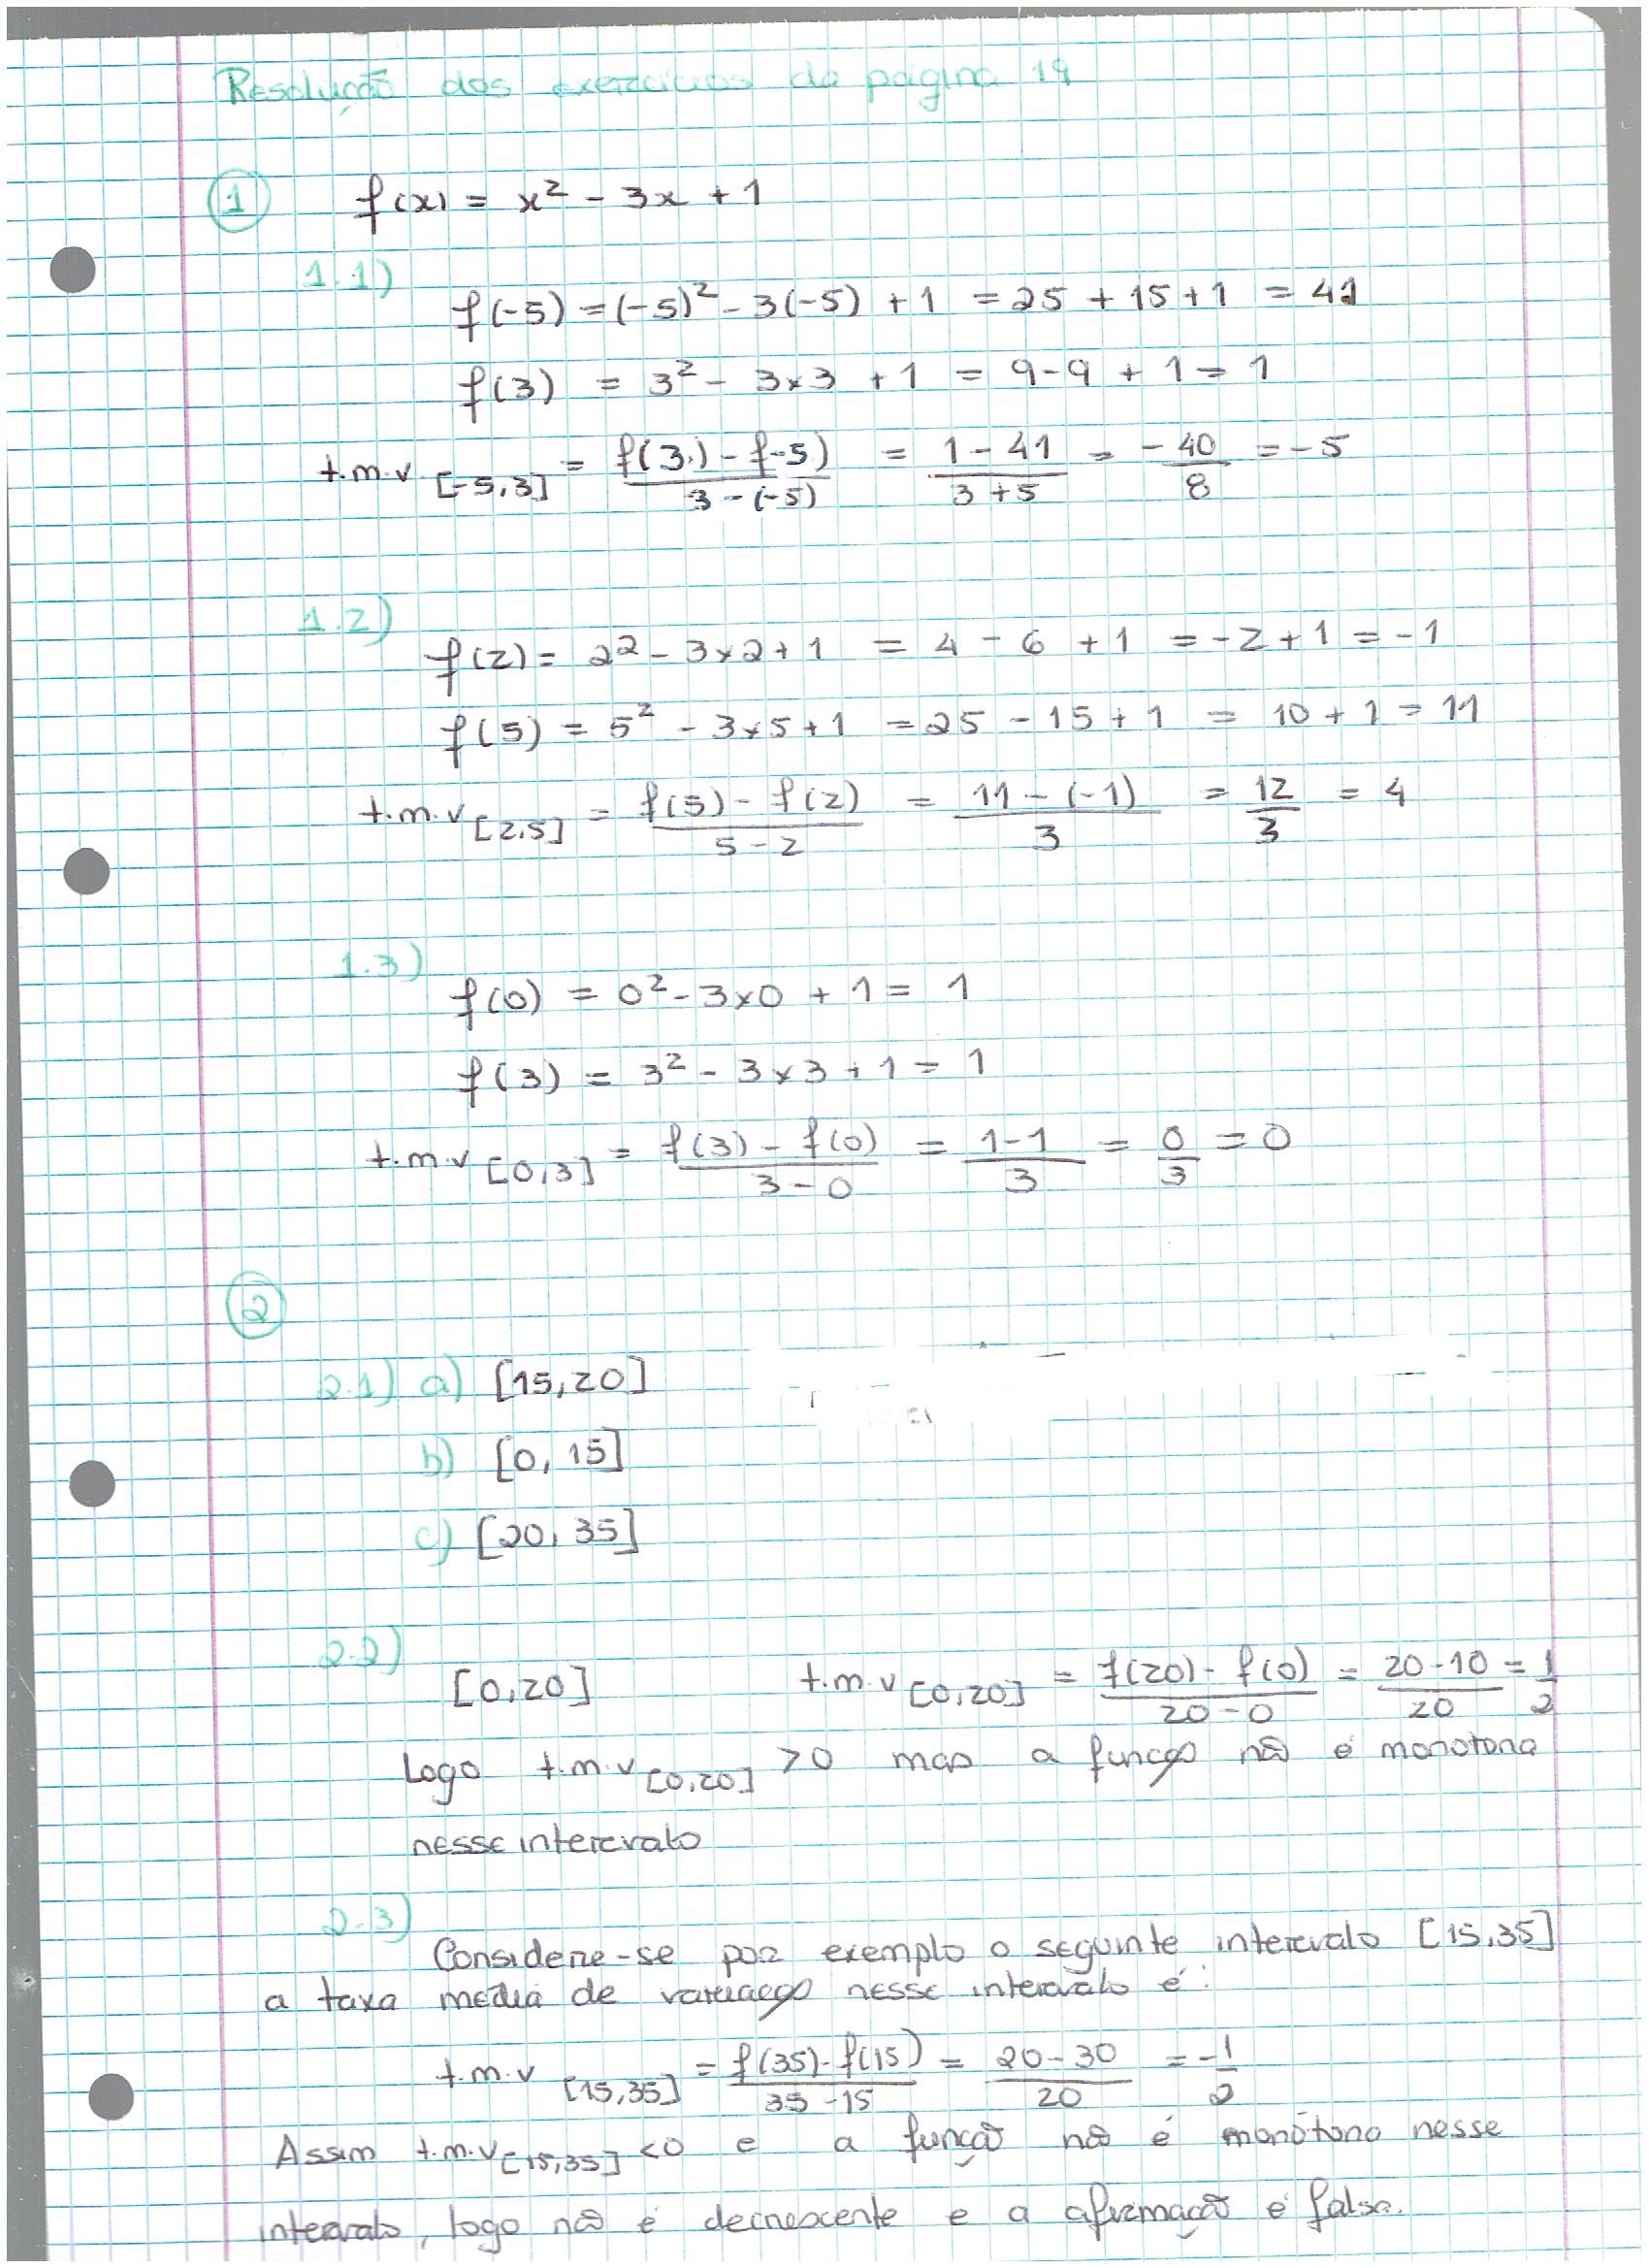 Resolução dos exercícios da página 19
1 f(x) = x² - 3x + 1
1.1)
f(-5) = (-5)² - 3(-5) + 1 = 25 + 15 + 1 = 41
f(3) = 3² - 3×3 + 1 = 9 - 9 + 1 = 1
t.m.v [-5,3] = f(3) - f-5) / 3 - (-5) = 1 - 41 / 3 + 5 = - 40 / 8 = - 5
1.2)
f(2) = 2² - 3×2 + 1 = 4 - 6 + 1 = -2 + 1 = -1
f(5) = 5² - 3×5 + 1 = 25 - 15 + 1 = 10 + 1 = 11
t.m.v [2,5] = f(5) - f(2) / 5 - 2 = 11 - (-1) / 3 = 12 / 3 = 4
1.3)
f(0) = 0² - 3×0 + 1 = 1
f(3) = 3² - 3×3 + 1 = 1
t.m.v [0,3] = f(3) - f(0) / 3 - 0 = 1 - 1 / 3 = 0 / 3 = 0
2
2.1) a) [15,20]
b) [0, 15]
c) [20, 35]
2.2)
[0,20] t.m.v [0,20] = f(20) - f(0) / 20 - 0 = 20 - 10 / 20 = 1 / 2
Logo t.m.v [0,20] > 0 mas a função não é monotona
nesse intervalo
2.3)
Considere-se por exemplo o seguinte intervalo [15,35]
a taxa média de variação nesse intervalo é:
t.m.v [15,35] = f(35) - f(15) / 35 - 15 = 20 - 30 / 20 = - 1 / 2
Assim t.m.v [15,35] < 0 e a função não é monótona nesse
intervalo, logo não é decrescente e a afirmação é falsa.